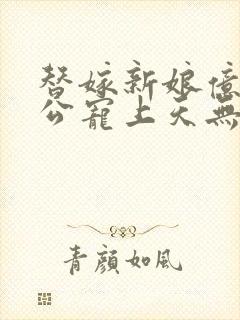 替嫁新娘億
公寵上天無
青顏如風